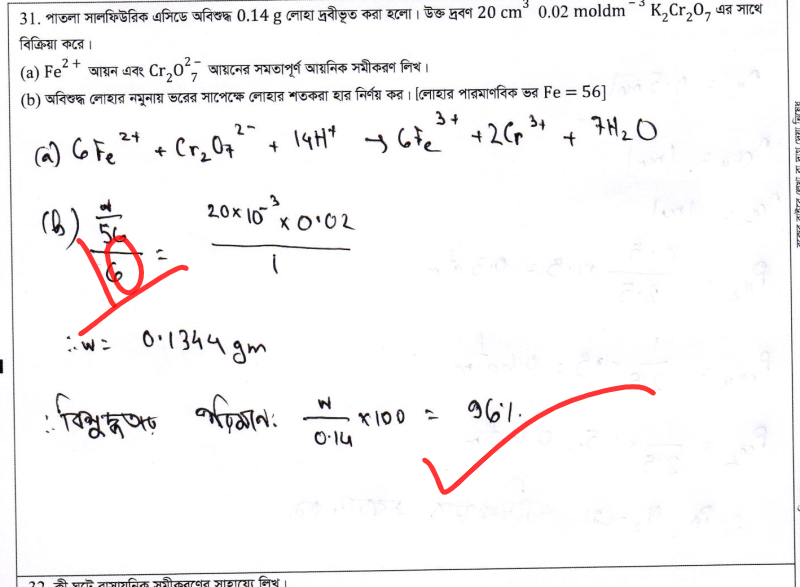 31. পাতলা সালফিউরিক এসিডে অবিশুদ্ধ 0.14 g লোহা দ্রবীভূত করা হলো। উক্ত দ্রবণ 20 cm³ 0.02 moldm⁻³ K₂Cr₂O₇ এর সাথে
বিক্রিয়া করে।
(a) Fe²⁺ আয়ন এবং Cr₂O₇²⁻ আয়নের সমতাপূর্ণ আয়নিক সমীকরণ লিখ।
(b) অবিশুদ্ধ লোহার নমুনায় ভরের সাপেক্ষে লোহার শতকরা হার নির্ণয় কর। [লোহার পারমাণবিক ভর Fe = 56]
(a) 6Fe²⁺ + Cr₂O₇²⁻ + 14H⁺ → 6Fe³⁺ + 2Cr³⁺ + 7H₂O
(b) (w/56)/6 = (20×10⁻³ × 0.02)/1
10
∴ w = 0.1344 gm
∴ বিশুদ্ধতার পরিমান: w/0.14 × 100 = 96%.
32. কী ঘটে রাসায়নিক সমীকরণের সাহায্যে লিখ।